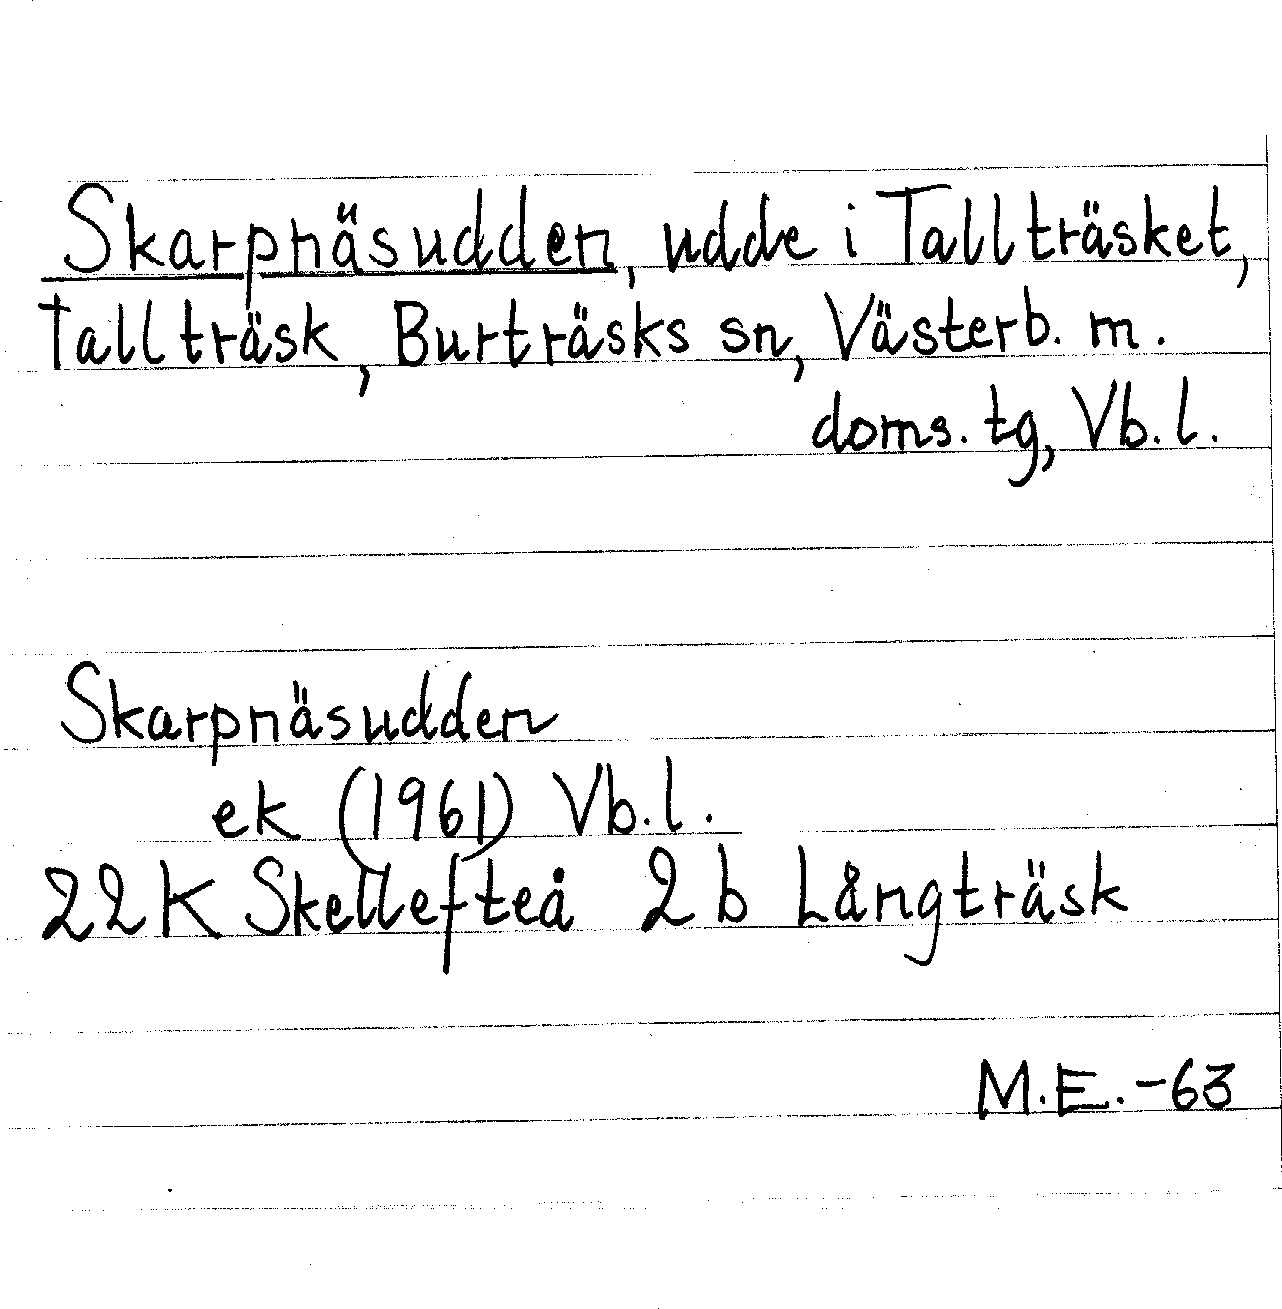 Skarpnäsudden, udde i Tallträsket,
Tallträsk, Burträsks sn, Västerb. m.
doms. tg, Vb. l.
Skarpnäsudden
ek (1961) Vb. l.
22K Skellefteå 2 b Långträsk
M.E. -63